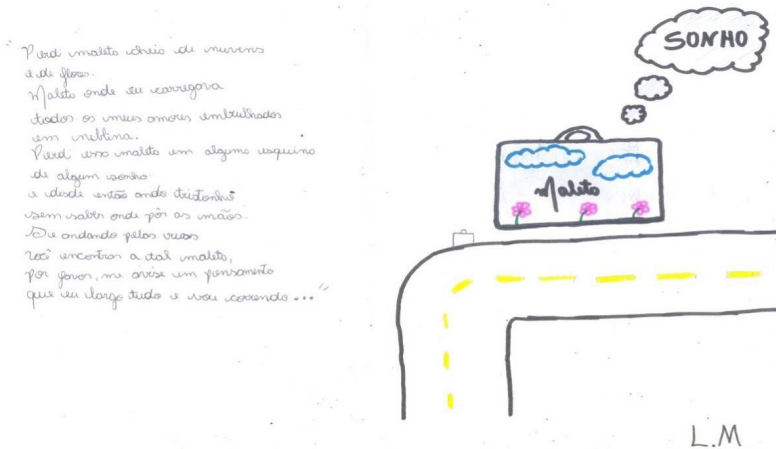 "Perdi maleta cheia de nuvens
e de flores.
Maleta onde eu carregava
todos os meus amores embrulhados
em neblina.
Perdi essa maleta em alguma esquina
de algum sonho
e desde então ando tristonha
sem saber onde pôr as mãos.
Se andando pelas ruas
você encontrar a tal maleta,
por favor, me avise em pensamento
que eu largo tudo e vou correndo..."
SONHO
Maleta
L.M